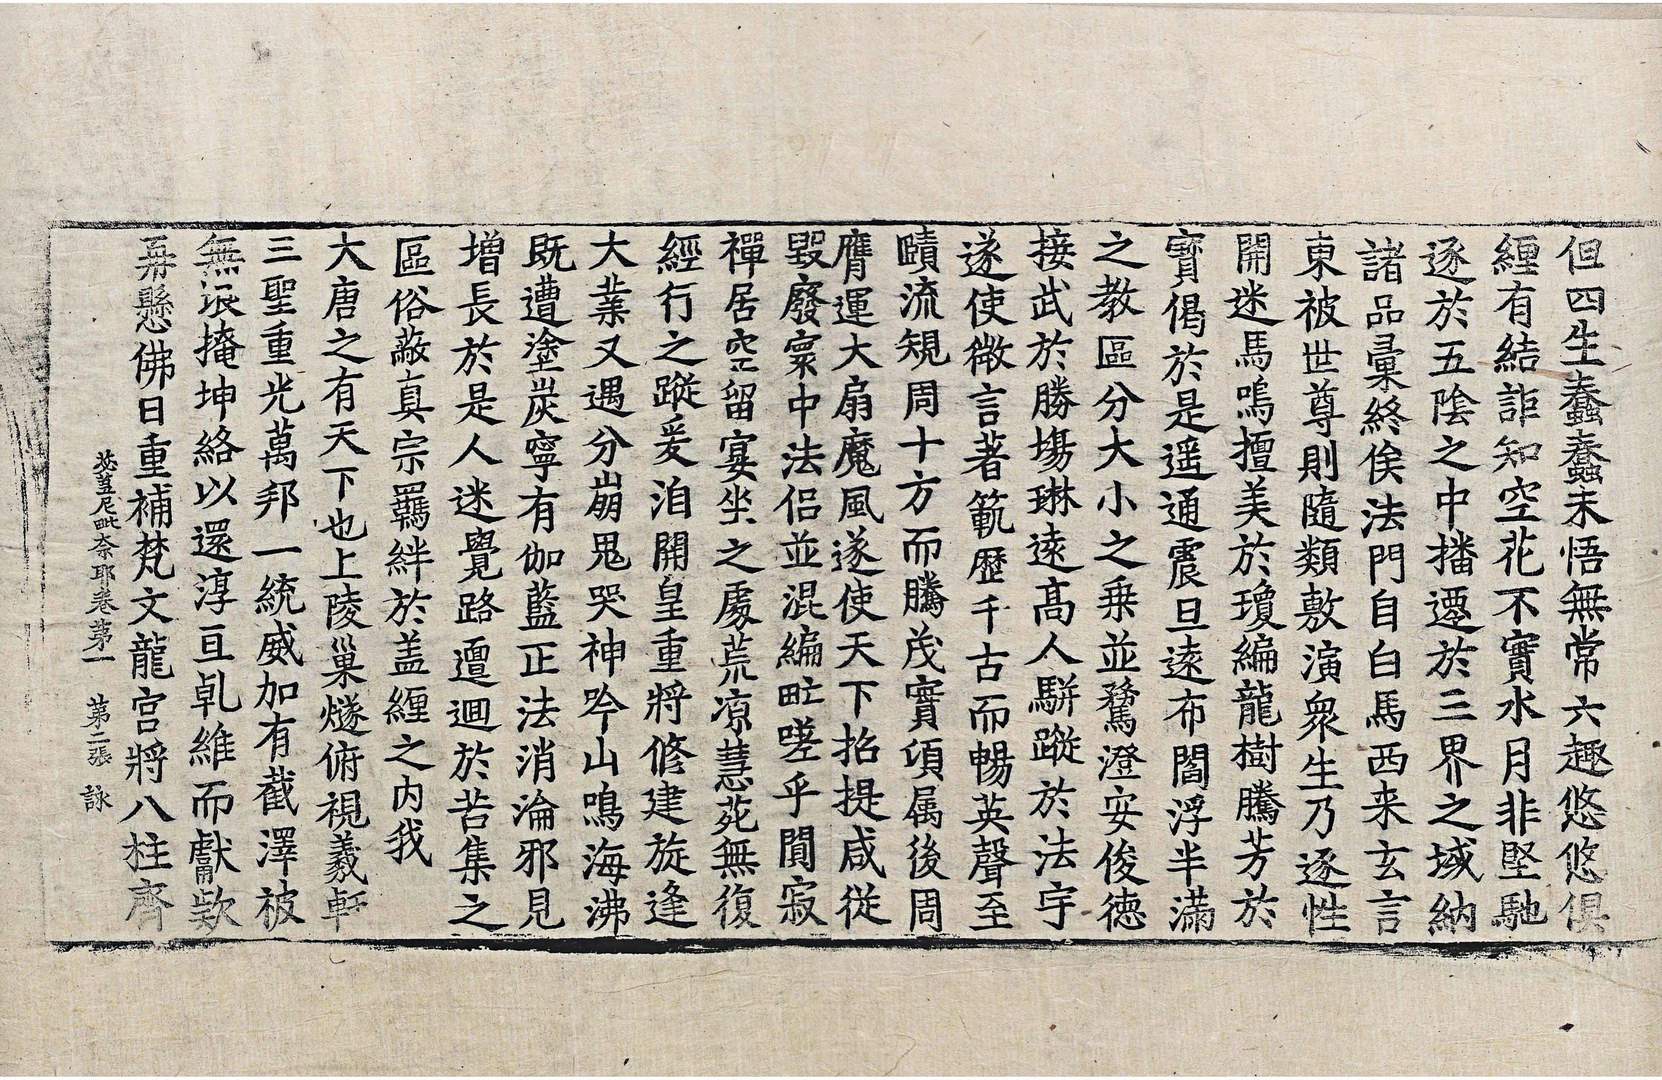 但四生蠢蠢未悟無常六趣悠悠俱
纏有結詎知空花不實水月非堅馳
逐於五陰之中播遷於三界之域納
諸品彙終俟法門自白馬西来玄言
東被世尊則隨類敷演衆生乃逐性
開迷馬鳴擅美於瓊編龍樹騰芳於
寶偈於是遥通震旦遠布閻浮半滿
之教區分大小之乗並騖澄安俊徳
接武於勝塲琳遠髙人駢蹤於法宇
遂使微言著範歷千古而暢英聲至
賾流規周十方而騰茂實頃属後周
膺運大扇魔風遂使天下招提咸從
毀廢寰中法侣並混編甿嗟乎閴寂
禪居空留宴坐之處荒凉慧苑無復
經行之蹤爰洎開皇重將修建旋逢
大業又遇分崩鬼哭神吟山鳴海沸
既遭塗炭寧有伽藍正法消淪邪見
增長於是人迷覺路邅迴於苦集之
區俗蔽真宗羈絆於盖纏之内我
大唐之有天下也上陵巢燧俯視羲軒
三聖重光萬邦一統威加有截澤被
無垠掩坤絡以還淳亘乹維而獻欵
再懸佛日重補梵文龍宫將八柱齊
苾蒭尼毗奈耶卷第一　第二張　詠